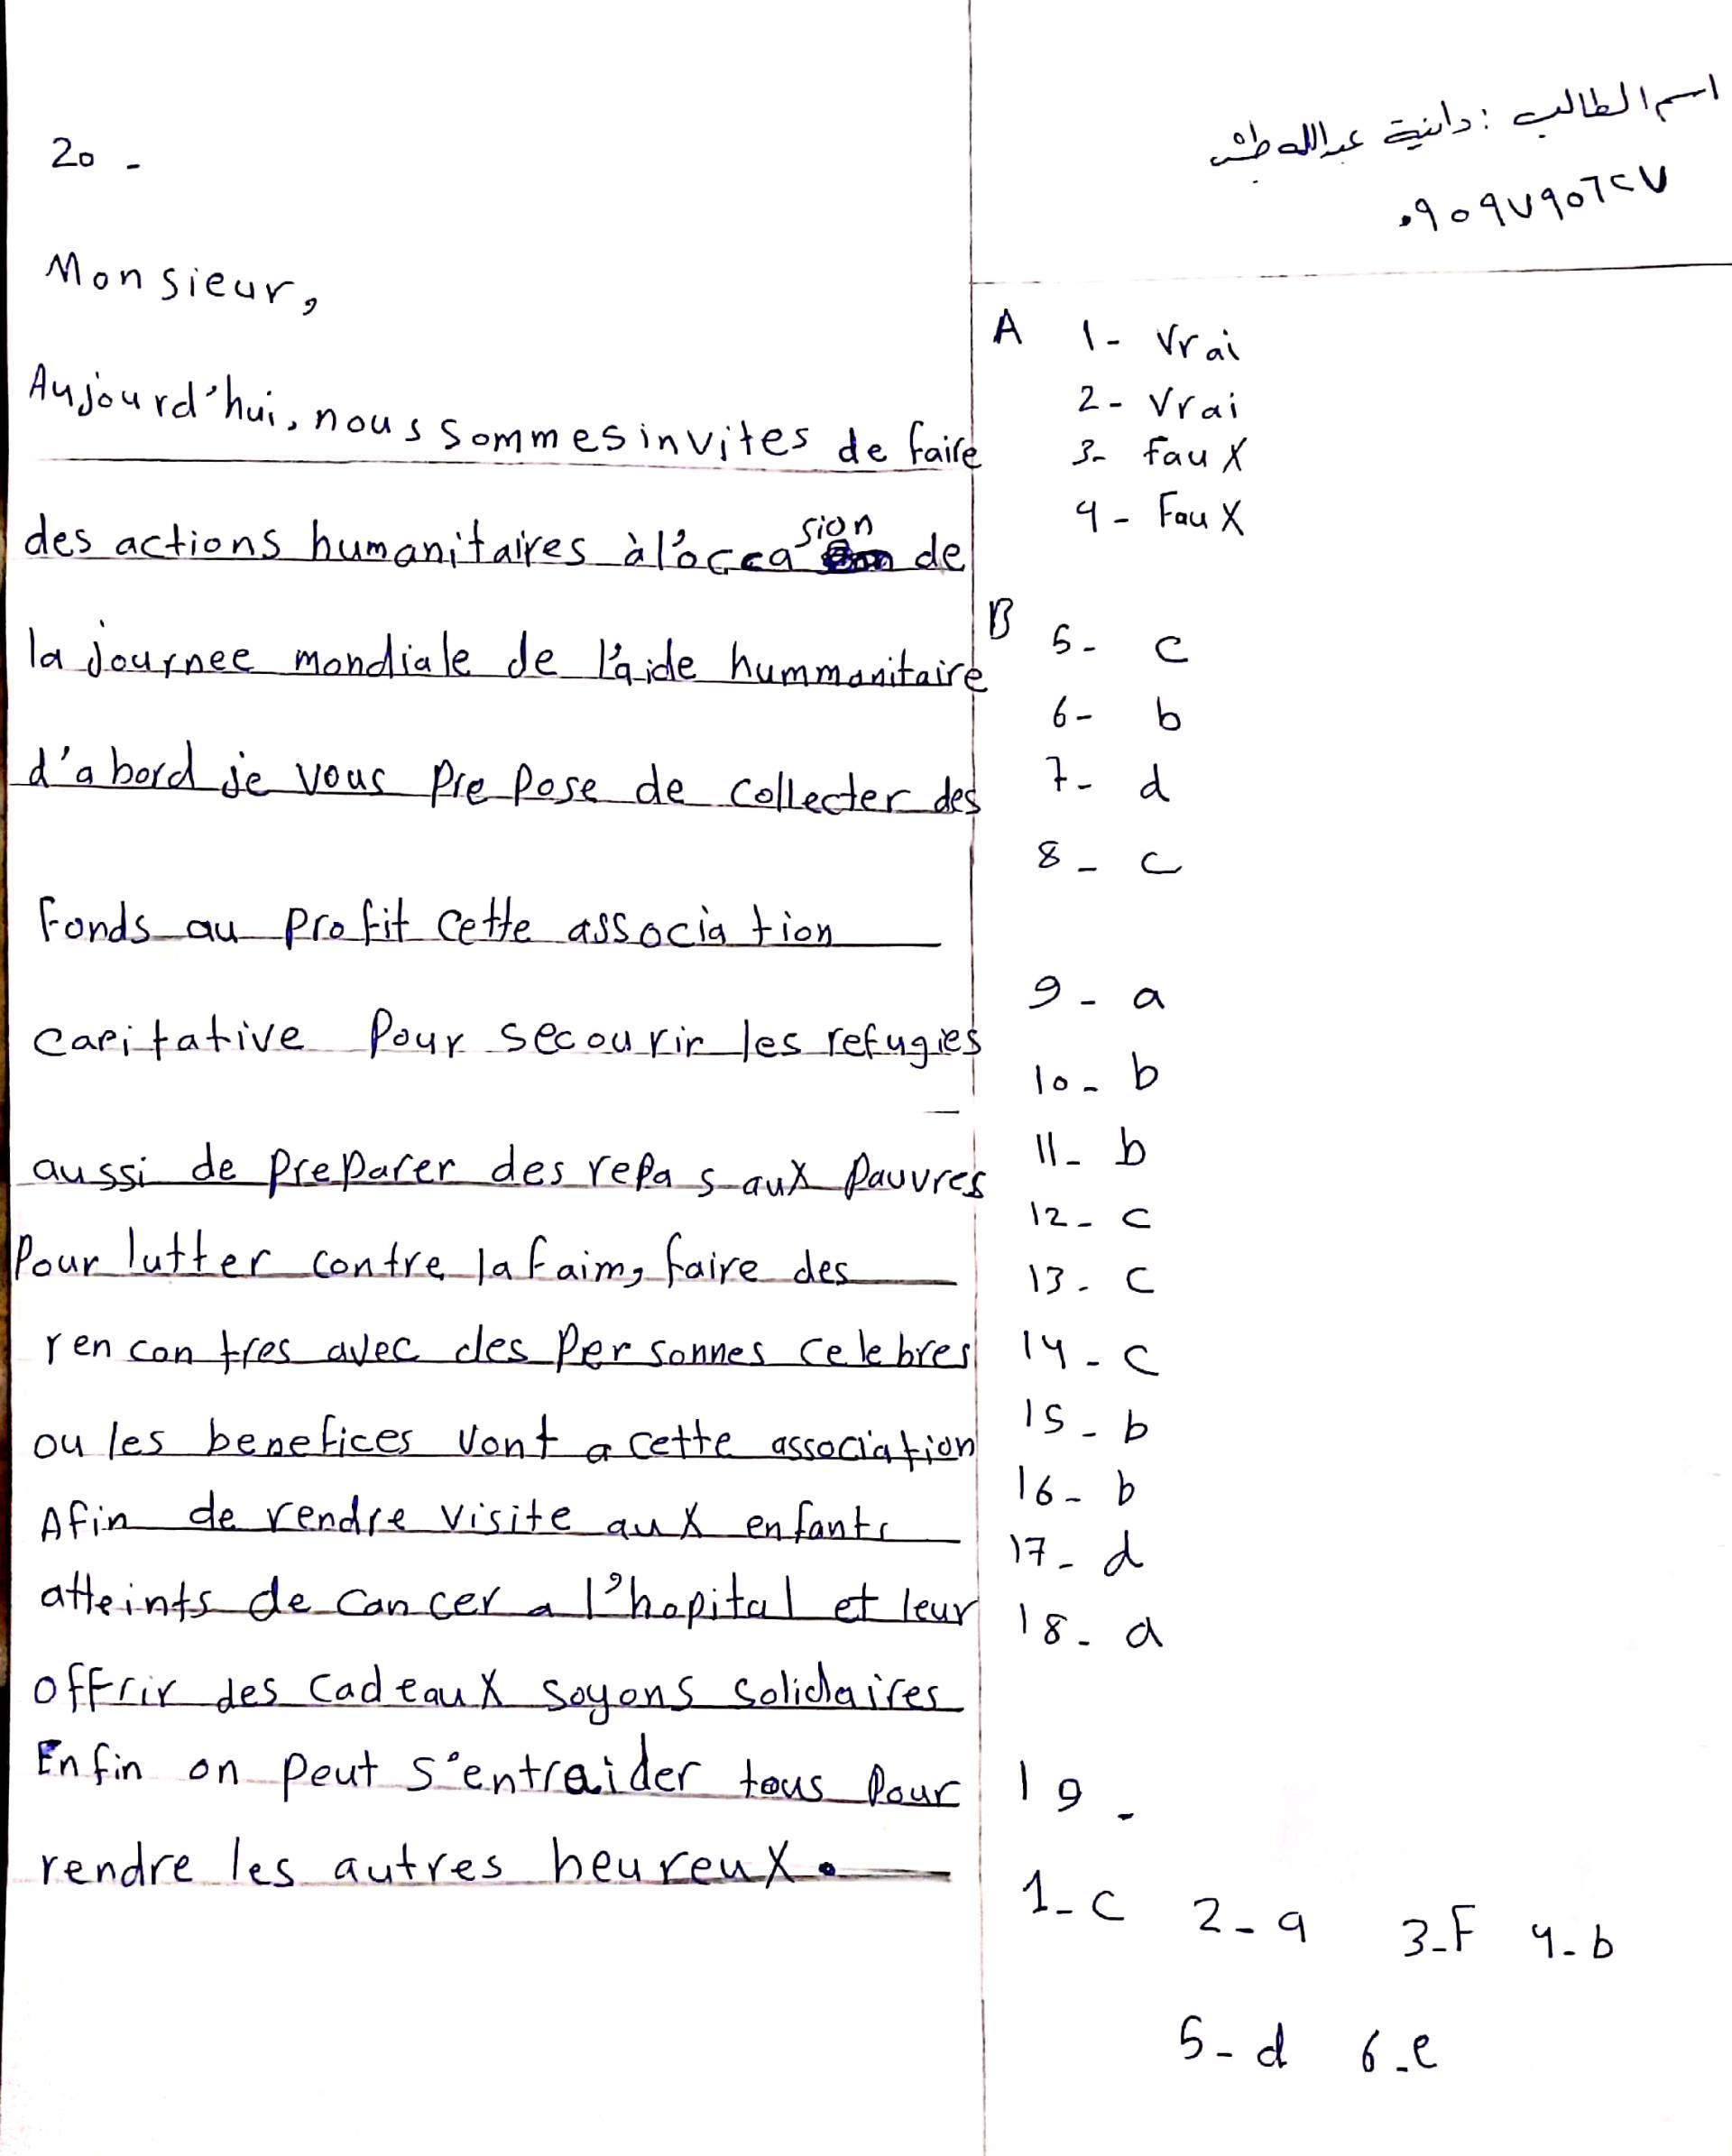 اسم الطالب : دانية عبدالله
٠٩٥٩٧٩٥٦٢٧
20 -
Monsieur,
Aujourd'hui, nous sommes invites de faire
des actions humanitaires à l'occasion de
la journee mondiale de l'aide hummanitaire
d'abord je vous prepose de collecter des
Fonds au profit cette association
caritative Pour secourir les refugies
aussi de preparer des repas aux pauvres
Pour lutter contre la faim, faire des
rencontres avec des personnes celebres
ou les benefices vont a cette association
Afin de rendre visite aux enfants
atteints de cancer a l'hopital et leur
offrir des cadeaux soyons solidaires
Enfin on peut s'entraider tous pour
rendre les autres heureux.
A 1- Vrai
2- Vrai
3- faux
4- Faux
B 5- c
6- b
7- d
8- c
9- a
10- b
11- b
12- c
13- c
14- c
15- b
16- b
17- d
18- a
19-
1-c 2-a 3-F 4-b
5-d 6-e